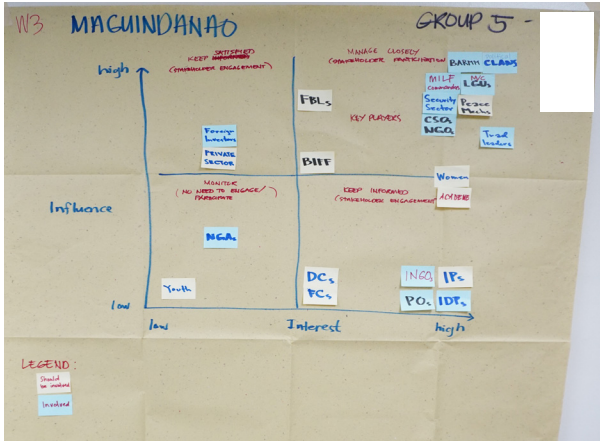 W3 MAGUINDANAO
GROUP 5 -
KEEP SATISFIED
(STAKEHOLDER ENGAGEMENT)
MANAGE CLOSELY
(STAKEHOLDER PARTICIPATION)
BARMM CLANS
high
MILF
Commanders
LGUs
FBLs
Security
Sector
Peace
KEY PLAYERS
CSOs
NGOs
Foreign
Investors
Tribal
leaders
PRIVATE
SECTOR
BIFF
Women
MONITOR
(NO NEED TO ENGAGE/
PARTICIPATE
KEEP INFORMED
(STAKEHOLDER ENGAGEMENT)
ACADEME
Influence
NGAs
Youth
DCs
FCs
INGOs
IPs
POs
IDPs
low
low
Interest
high
LEGEND:
Should
be involved
Involved